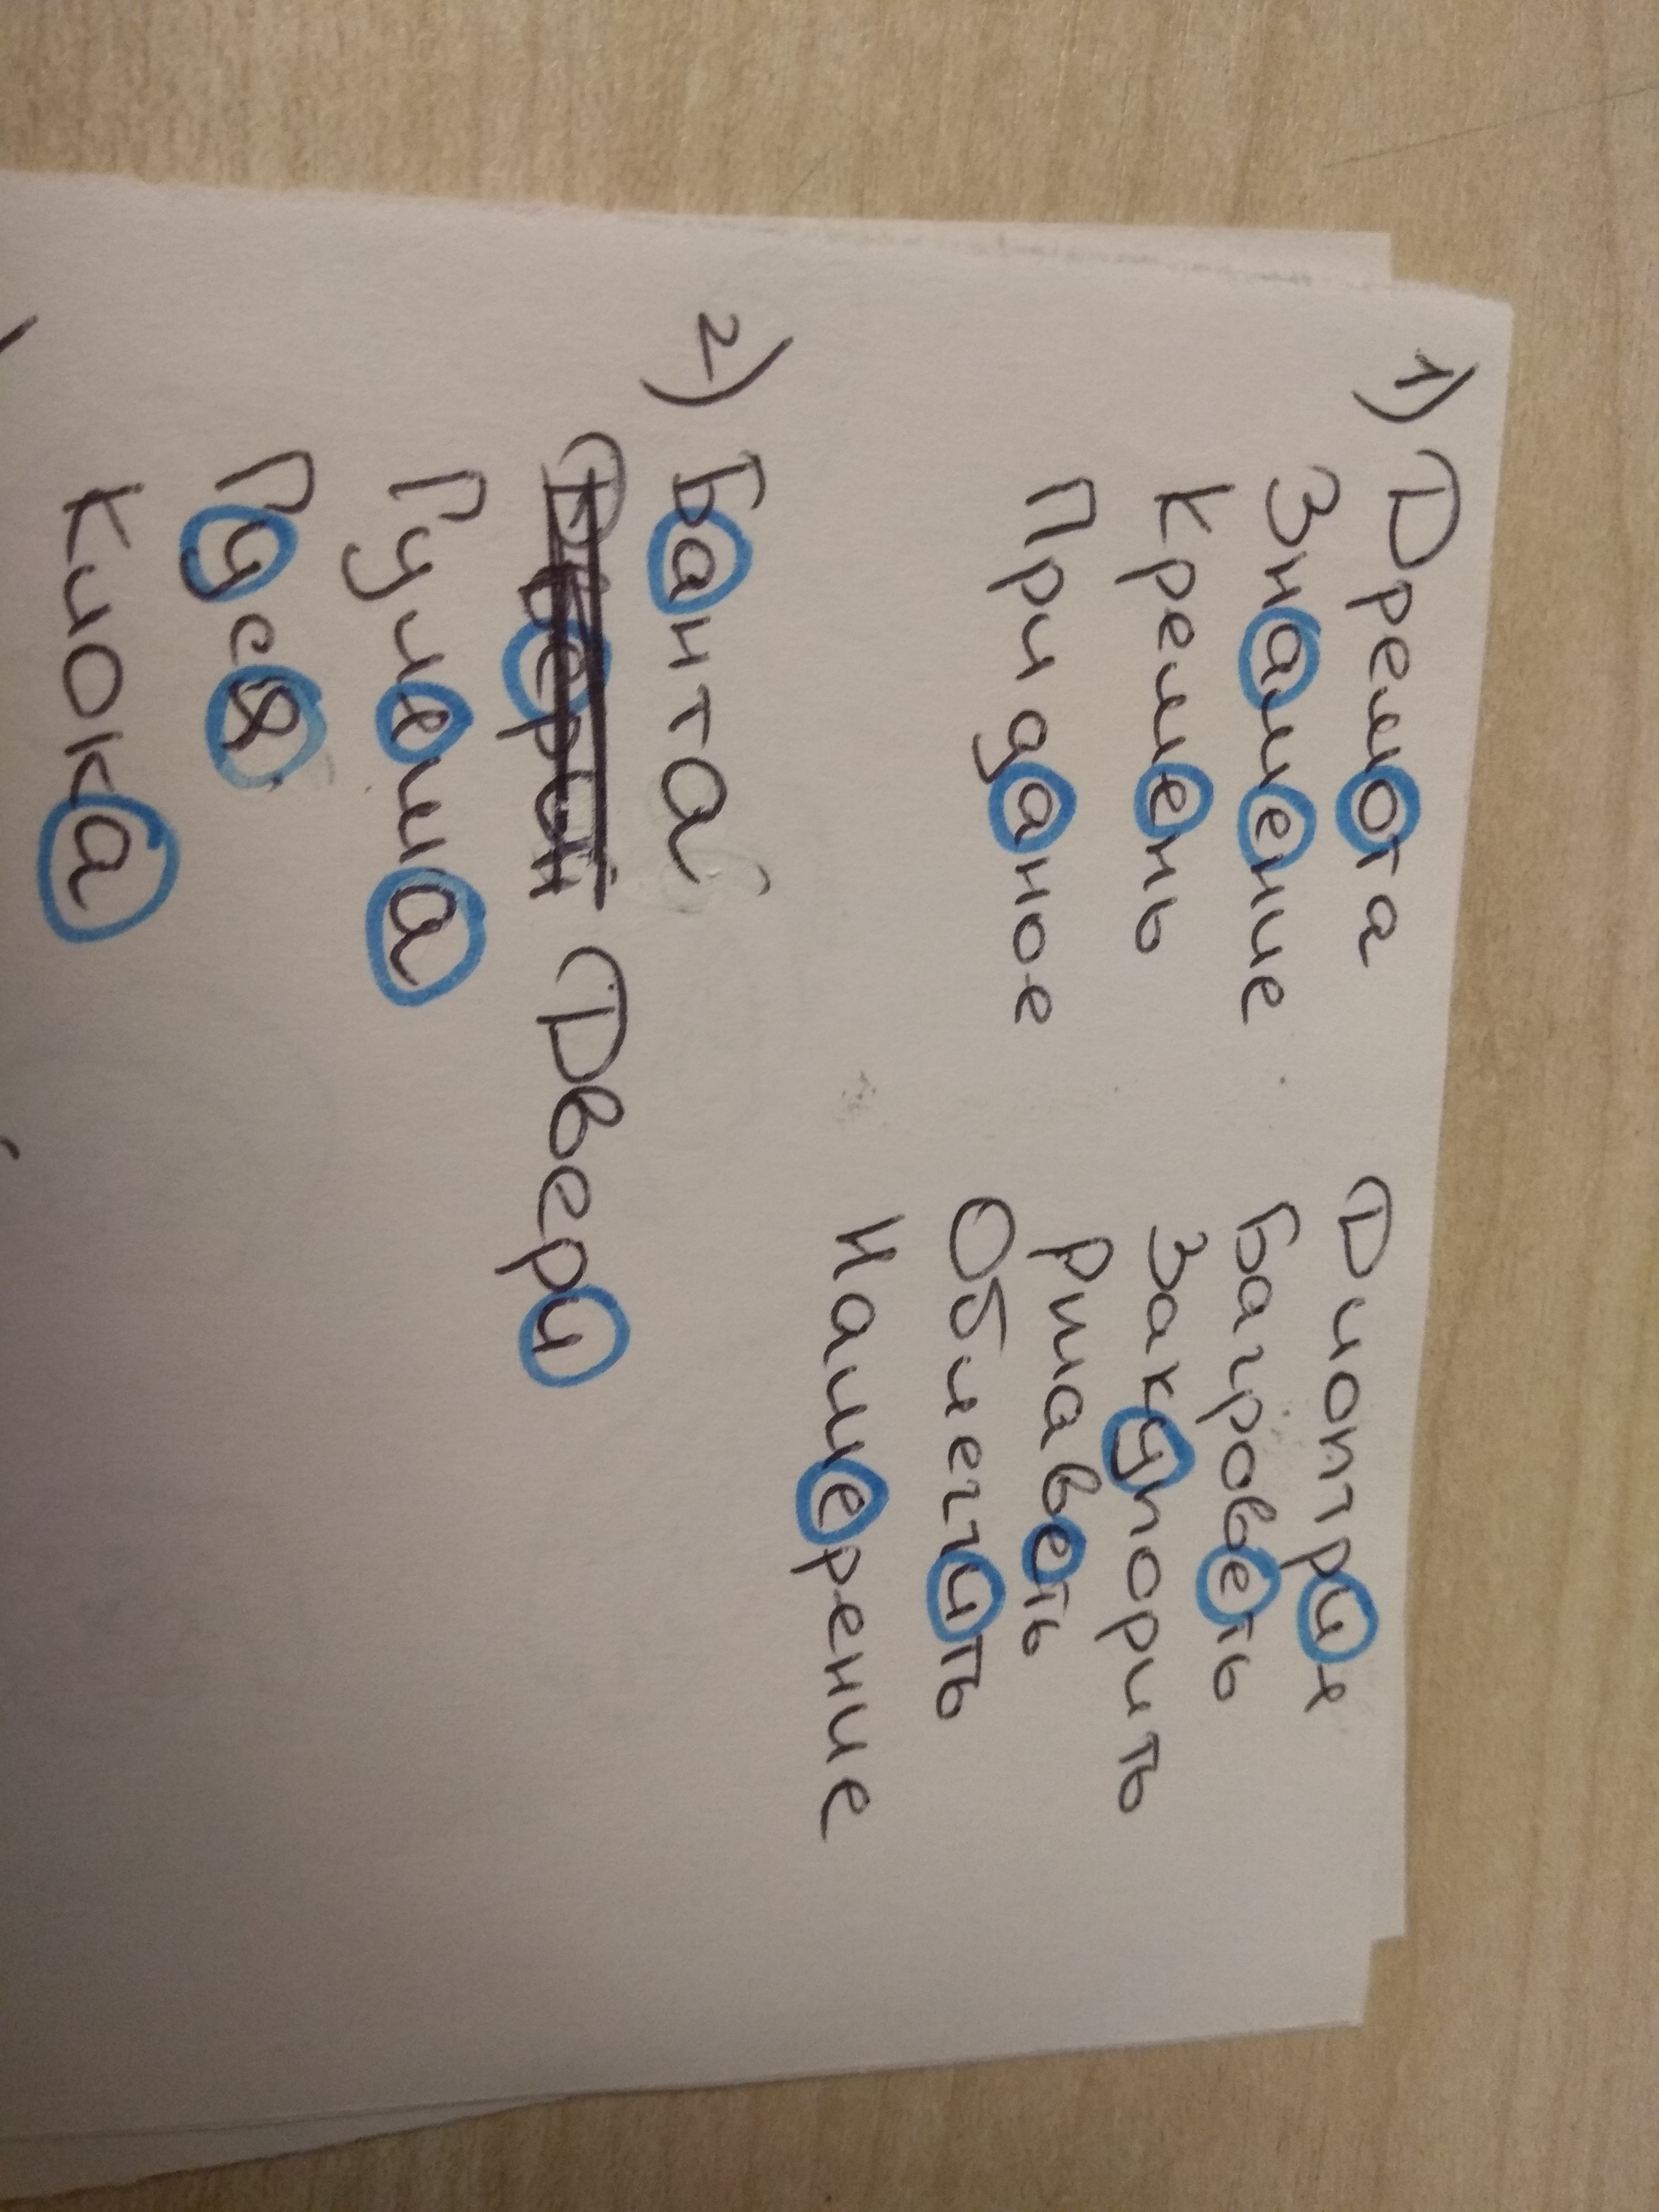 1) Дремота Диоптрия
Знамение Багроветь
Кремень Закупорить
Приданое Ржаветь
Облегчить
Намерение
2) Банта
Двери
Гуляша
Гуся
Клока